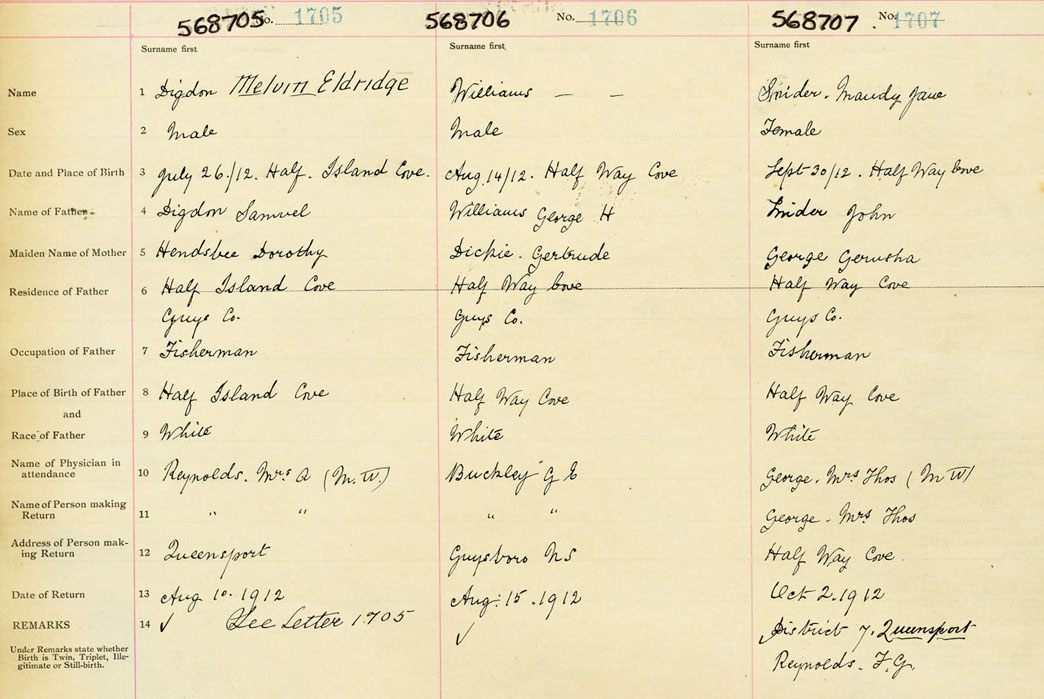 568705 No. 1705 568706 No. 1706 568707 No. 1707
Surname first Surname first, Surname first
Name 1 Digdon Melvin Eldridge Williams — — Snider. Maudy Jane
Sex 2 Male Male Female
Date and Place of Birth 3 July 26./12. Half. Island Cove. Aug. 14/12. Half Way Cove Sept 30/12. Half Way Cove
Name of Father 4 Digdon Samuel Williams George H Snider John
Maiden Name of Mother 5 Hendsbee Dorothy Dickie. Gertrude George Gerusha
Residence of Father 6 Half Island Cove Half Way Cove Half Way Cove
Guys Co. Guys Co. Guys Co.
Occupation of Father 7 Fisherman Fisherman Fisherman
Place of Birth of Father 8 Half Island Cove Half Way Cove Half Way Cove
and
Race of Father 9 White White White
Name of Physician in
attendance 10 Reynolds. Mrs A (M.W.) Buckley G E George. Mrs Thos (M W)
Name of Person making
Return 11 " " " " George. Mrs Thos
Address of Person mak-
ing Return 12 Queensport Guysboro N S Half Way Cove
Date of Return 13 Aug 10. 1912 Aug: 15. 1912 Oct 2. 1912
REMARKS 14 ✓ See Letter 1705 ✓ District 7. Queensport
Under Remarks state whether
Birth is Twin, Triplet, Ille-
gitimate or Still-birth.
Reynolds. F. G.